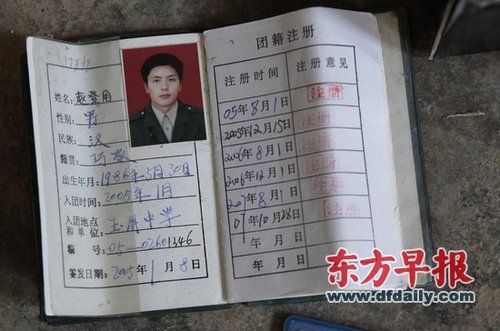 姓名:赵登用
性别:男
民族:汉
籍贯:巧家
出生年月:1986年3月30日
入团时间:2005年1月
入团地点和单位:玉屏中学
编 号 05-02601346
签发日期:2005年1月8日
团籍注册
注册时间 注册意见
05年8月1日 注册
2005年12月15日 注册
2006年8月1日 注册
2006年12月1日 注册
2007年8月1日
07年10月28日 注册
年 月 日
年 月 日
东方早报
www.dfdaily.com